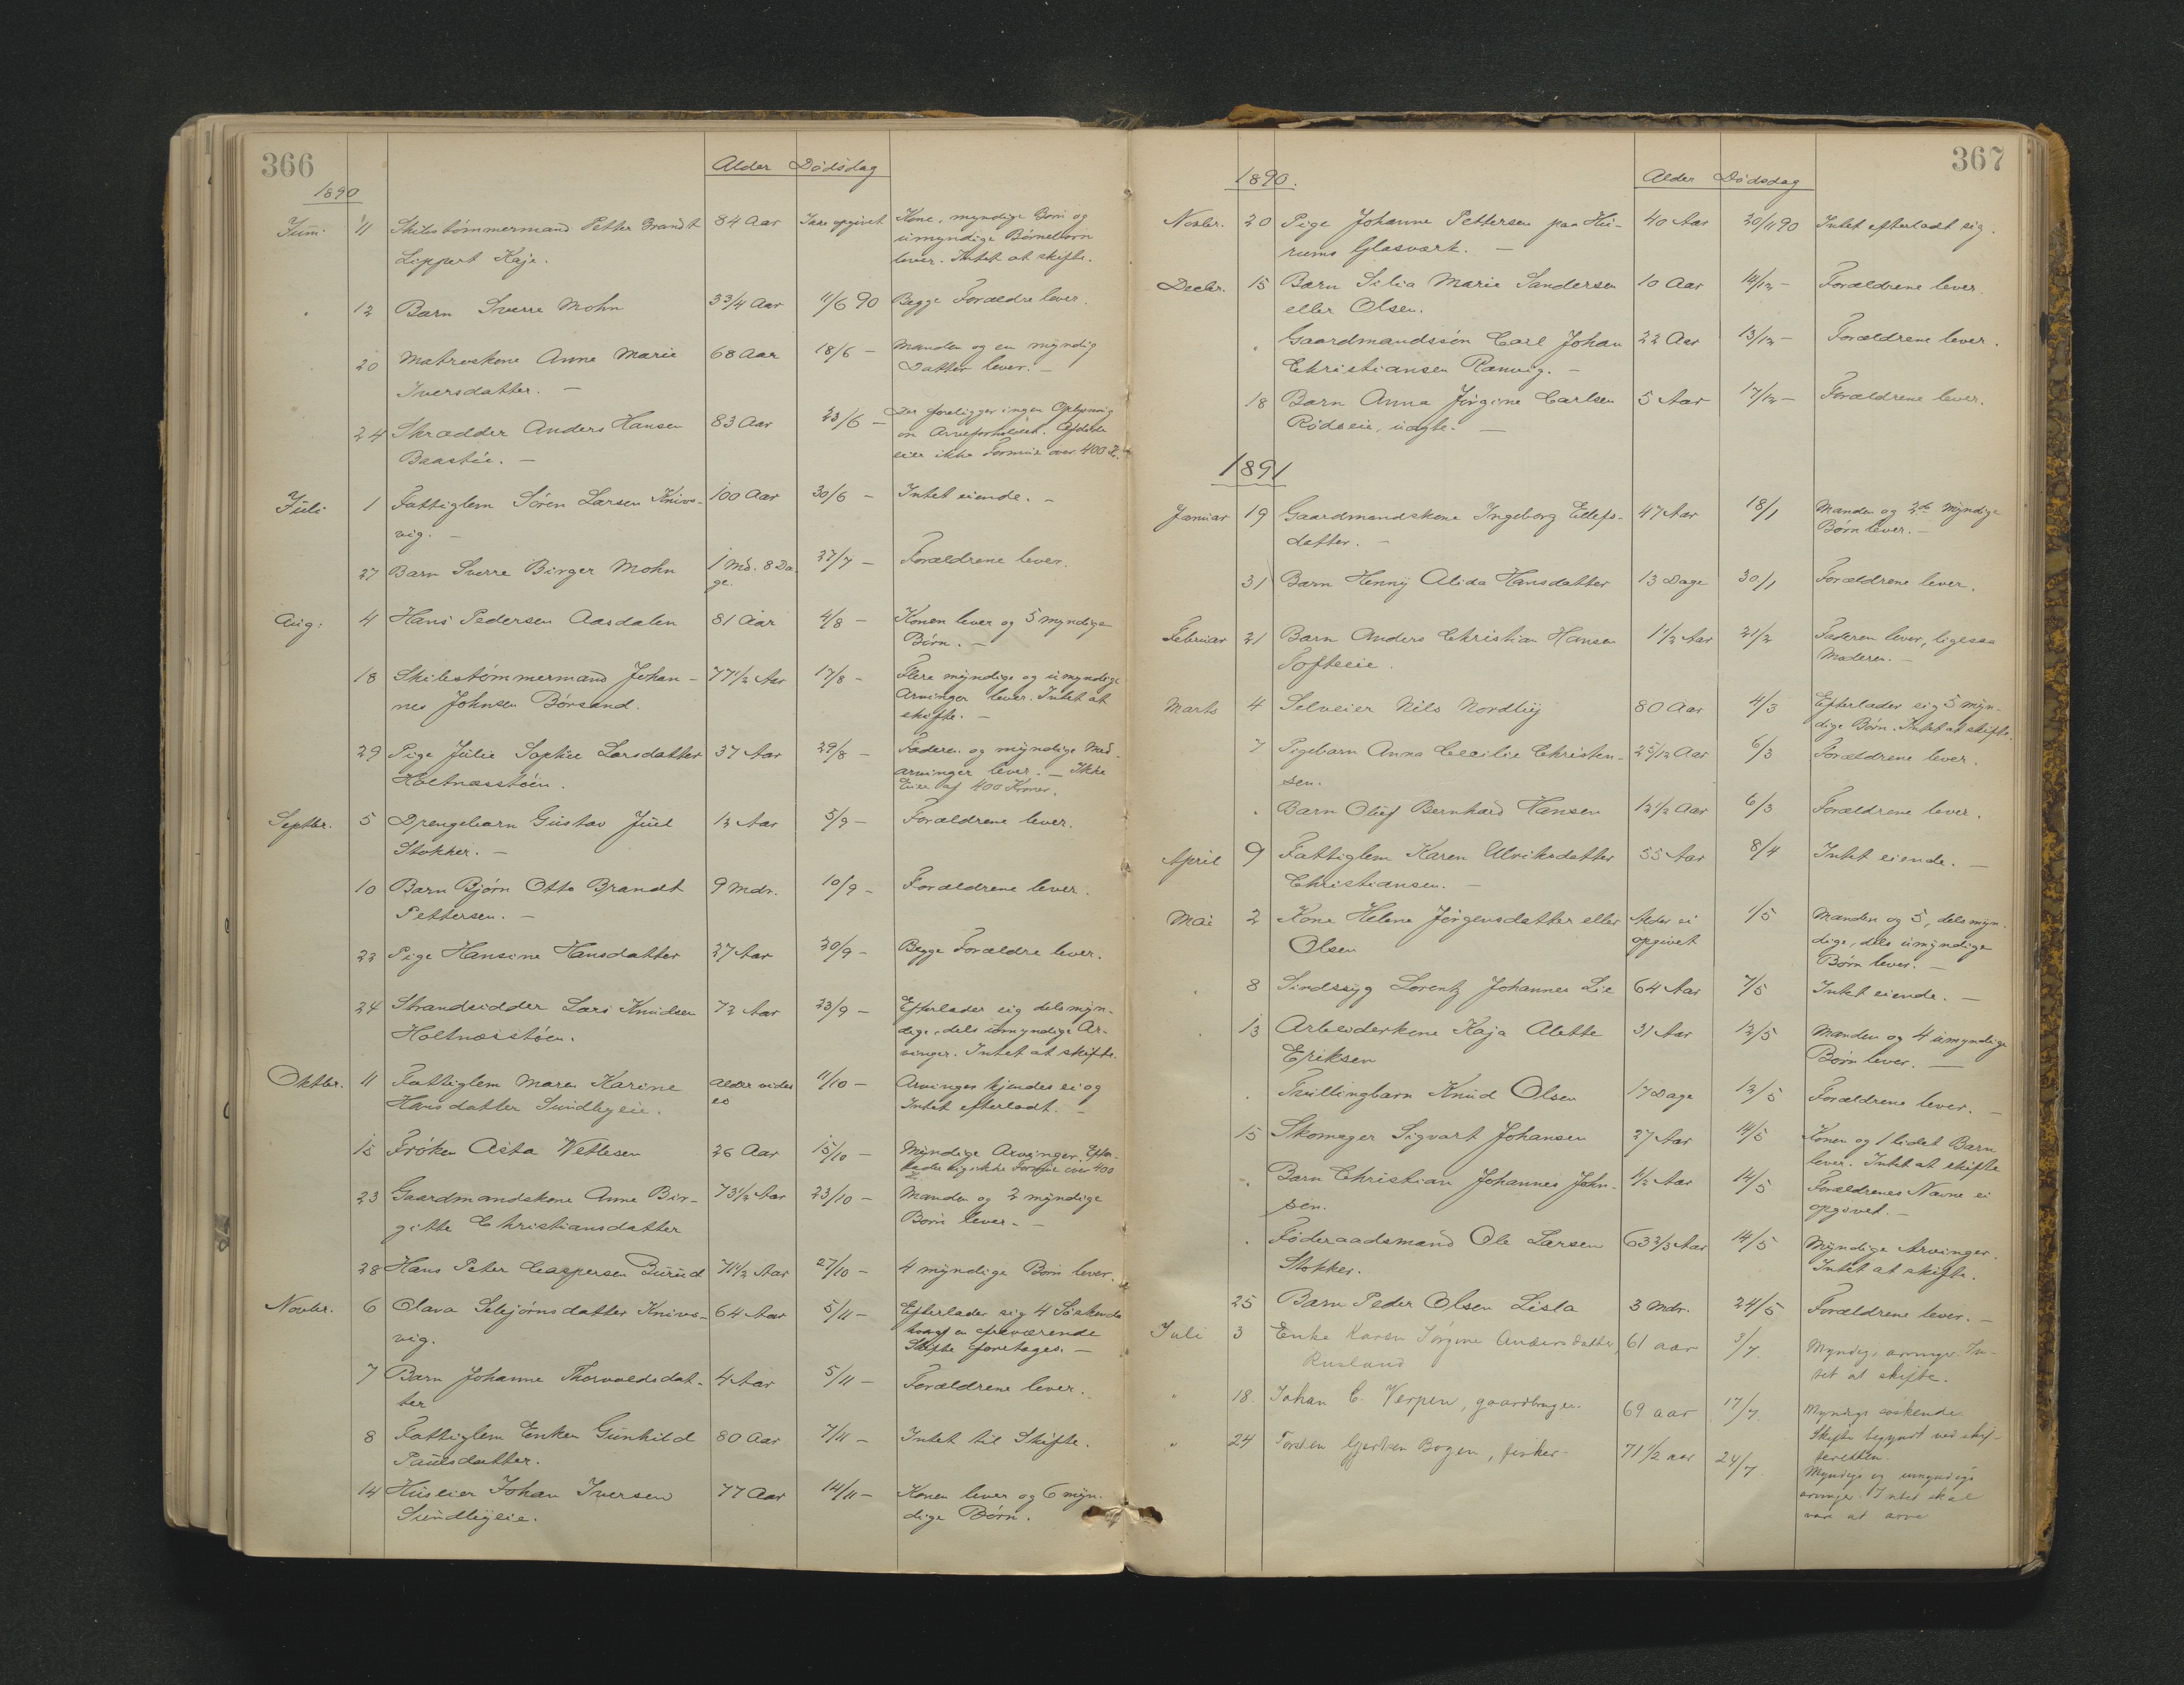 366
Alder Dödsdag
1890
Juni 11 Skibstömmermand Petter Brandt 84 Aar Ikke opgivet Kone, myndige Börn og
Lippert Kaje. umyndige Börnebörn
lever. Intet at skifte.
12 Barn Sverre Mohn 3 3/4 Aar 11/6 90 Begge Forældre lever.
20 Matroskone Anne Marie 68 Aar 18/6 — Manden og en myndig
Iversdatter. — Datter lever. —
24 Skrædder Anders Hansen 83 Aar 23/6 — Der foreligger ingen Oplysning
Baastö. — om Arveforholdet. Afdöde
eier ikke Formue over 400 Kr.
Juli 1 Fattiglem Sören Larsen Knivs- 100 Aar 30/6 — Intet eiende. —
vig. —
27 Barn Sverre Birger Mohn 1 Md. 8 Da- 27/7 — Forældrene lever.
ge.
Aug. 4 Hans Pedersen Aasdalen 81 Aar 4/8 — Konen lever og 5 myndige
Börn. —
18 Skibstömmermand Johan- 77 1/2 Aar 17/8 — Flere myndige og umyndige
nes Johnsen Börsand. Arvinger lever. Intet at
skifte. —
29 Pige Julie Sophie Larsdatter 37 Aar 29/8 — Faderen og myndige Med-
Holtnæsstöen. arvinger lever. — Ikke
Eier af 400 Kroner.
Septbr. 5 Drengebarn Gustav Juul 12 Aar 5/9 — Forældrene lever.
Stokker. —
10 Barn Björn Otto Brandt 9 Mdr. 10/9 — Forældrene lever.
Pettersen. —
22 Pige Hansine Hansdatter 27 Aar 20/9 — Begge Forældre lever.
24 Strandsidder Lars Knudsen 72 Aar 23/9 — Efterlader sig dels myn-
Holtnæsstöen. dige, dels umyndige Ar-
vinger. Intet at skifte.
Oktbr. 11 Fattiglem Maren Karine Alder vides 11/10 — Arvinger kjendes ei og
Hansdatter Sundbyeie. ei Intet efterladt. —
15 Fröken Asta Wetlesen 26 Aar 15/10 — Myndige Arvinger. Efter-
lader sig ikke Formue over 400
23 Gaardmandskone Anne Bir- 73 1/2 Aar 23/10 — Manden og 2 myndige
gitte Christiansdatter Börn lever. —
28 Hans Peter Caspersen Burud 71 1/2 Aar 27/10 — 4 myndige Börn lever.
Novbr. 6 Olava Selvjörnsdatter Knivs- 64 Aar 5/11 — Efterlader sig 4 Söskende
vig. hvoraf en fraværende
Skifte foretages. —
7 Barn Johanne Thorvaldsdat- 4 Aar 5/11 — Forældrene lever.
ter
8 Fattiglem Enken Gunhild 80 Aar 7/11 — Intet til Skifte.
Paulsdatter.
14 Huseier Johan Iversen 77 Aar 14/11 — Konen lever og 6 myn-
Sundbyeie. dige Börn.
367
1890. Alder Dödsdag
Novbr. 20 Pige Johanne Pettersen paa Hu- 40 Aar 20/11 90 Intet efterladt sig.
rums Glasværk. —
Decbr. 15 Barn Silia Marie Sandersen 10 Aar 14/12 — Forældrene lever.
eller Olsen.
Gaardmandssön Carl Johan 22 Aar 13/12 — Forældrene lever.
Christiansen Ramvig. —
18 Barn Anna Jörgine Carlsen 5 Aar 17/12 — Forældrene lever.
Rödseie, uægte. —
1891
Januar 19 Gaardmandskone Ingeborg Ellefs- 47 Aar 18/1 Manden og 2de myndige
datter. — Börn lever. —
31 Barn Henny Alida Hansdatter 13 Dage 30/1 Forældrene lever.
Februar 21 Barn Anders Christian Hansen 1 1/2 Aar 21/2 Faderen lever, ligesaa
Tofteeie. Moderen. —
Marts 4 Selveier Nils Nordby 80 Aar 4/3 Efterlader sig 5 myn-
dige Börn. Intet at skifte.
7 Pigebarn Anna Cecilie Christen- 2 5/12 Aar 6/3 Forældrene lever.
sen.
Barn Oluf Bernhard Hansen 12 1/2 Aar 6/3 Forældrene lever.
April 9 Fattiglem Karen Ulriksdatter 55 Aar 8/4 Intet eiende. —
Christiansen. —
Mai 2 Kone Helene Jörgensdatter eller Alder ei 1/5 Manden og 5, dels myn-
Olsen opgivet dige, dels umyndige
Börn lever. —
8 Sindssyg Lorentz Johannes Lie 64 Aar 7/5 Intet eiende. —
13 Arbeiderkone Kaja Alette 31 Aar 12/5 Manden og 4 umyndige
Eriksen Börn lever. —
Tvillingbarn Knud Olsen 17 Dage 12/5 Forældrene lever. —
15 Skomager Sigvart Johansen 27 Aar 14/5 Konen og 1 lidet Barn
lever. Intet at skifte
Barn Christian Johannes John- 1/2 Aar 14/5 Forældrenes Navne ei
sen. opgivet. —
Föderaadsmand Ole Larsen 63 2/3 Aar 14/5 Myndige Arvinger.
Stokker. Intet at skifte.
25 Barn Peder Olsen Lisla 3 Mdr. 24/5 Forældrene lever. —
Juli 3 Enke Karen Jörgine Andersdatter, 61 aar 3/7. Myndige arvinger. In-
Rusland tet at skifte.
" 18. Johan C. Verpen, gaardbruger. 69 aar 17/7. Myndige söskende.
Skifte begyndt ved skif-
teretten.
" 24 Torsten Gjertsen Bogen, fisker. 71 1/2 aar 24/7. Myndige og umyndige
arvinger. Intet skal
være at arve